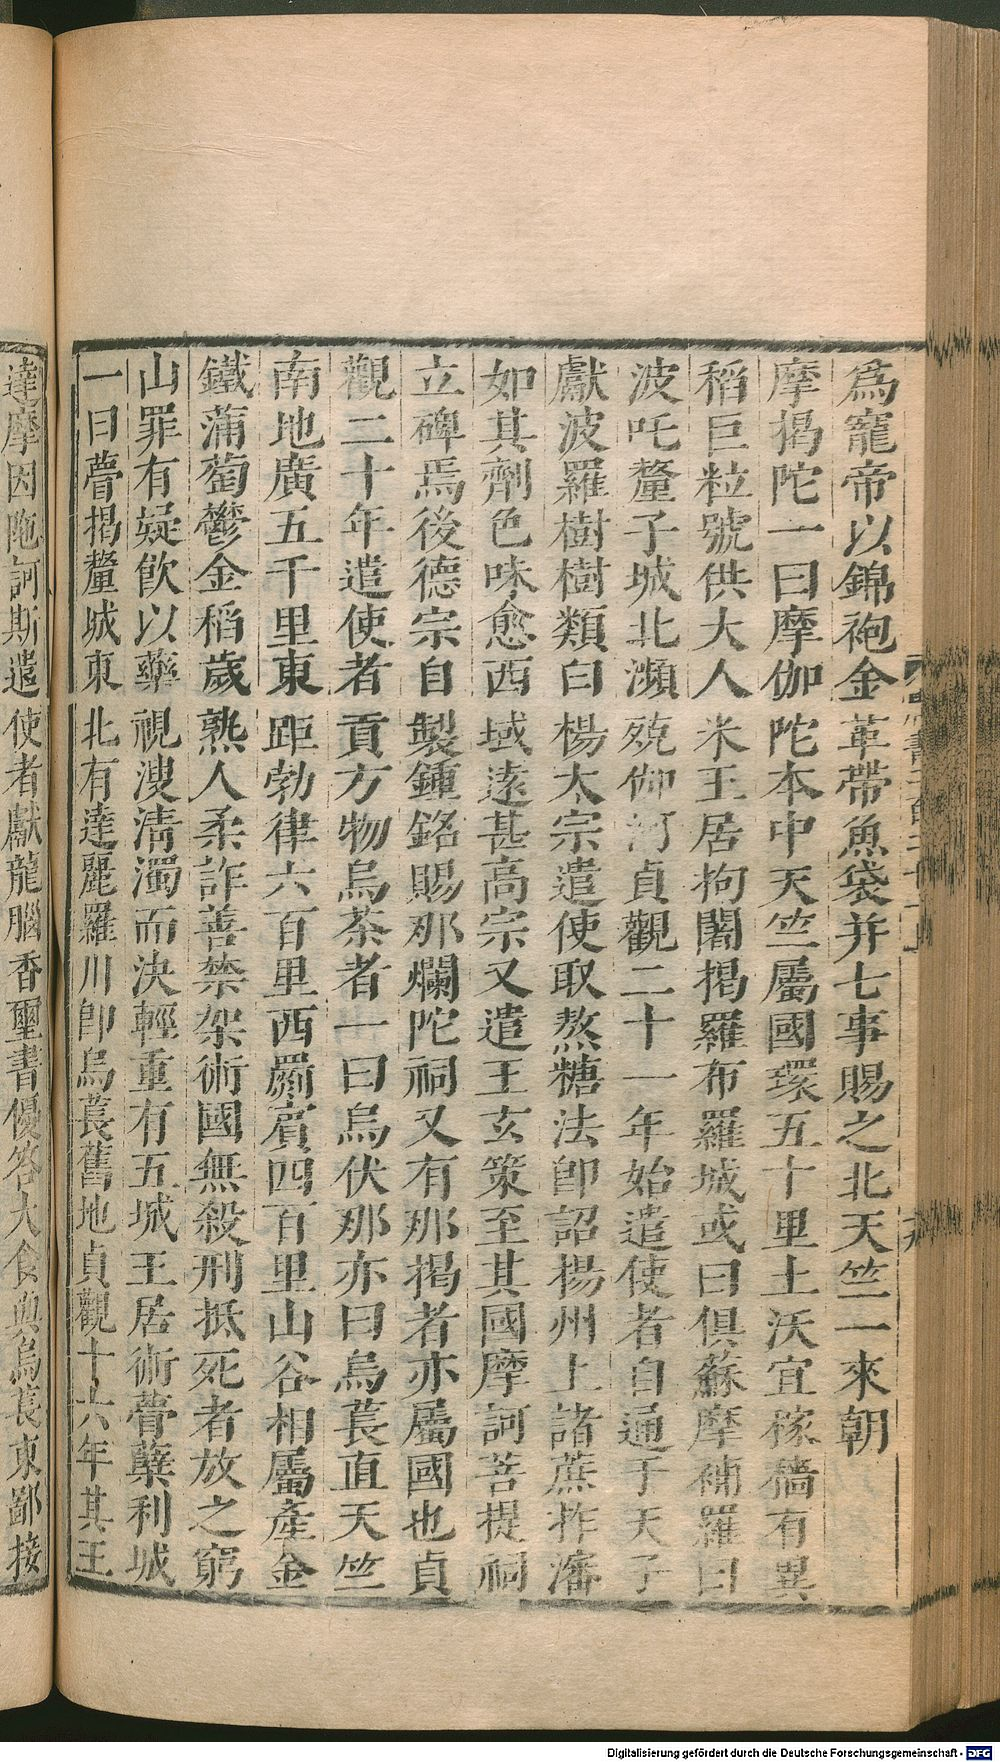 為寵帝以錦袍金革帶魚袋并七事賜之北天竺一來朝
摩揭陀一曰摩伽陀本中天竺屬國環五十里土沃宜稼穡有異
稻巨粒號供大人米王居拘闍揭羅布羅城或曰俱蘇摩補羅曰
波吒釐子城北瀕殑伽河貞觀二十一年始遣使者自通于天子
獻波羅樹樹類白楊太宗遣使取熬糖法卽詔揚州上諸蔗拃瀋
如其劑色味愈西域遠甚高宗又遣王玄策至其國摩訶菩提祠
立碑焉後德宗自製鍾銘賜那爛陀祠又有那揭者亦屬國也貞
觀二十年遣使者貢方物烏茶者一曰烏伏那亦曰烏萇直天竺
南地廣五千里東距勃律六百里西罽賓四百里山谷相屬產金
鐵蒲萄鬱金稻歲熟人柔詐善禁架術國無殺刑抵死者放之窮
山罪有疑飲以藥視溲清濁而決輕重有五城王居術瞢櫱利城
一曰瞢揭釐城東北有達麗羅川卽烏萇舊地貞觀十六年其王
達摩因陁訶斯遣使者獻龍腦香璽書優答大食與烏萇東鄙接
Digitalisierung gefördert durch die Deutsche Forschungsgemeinschaft - DFG